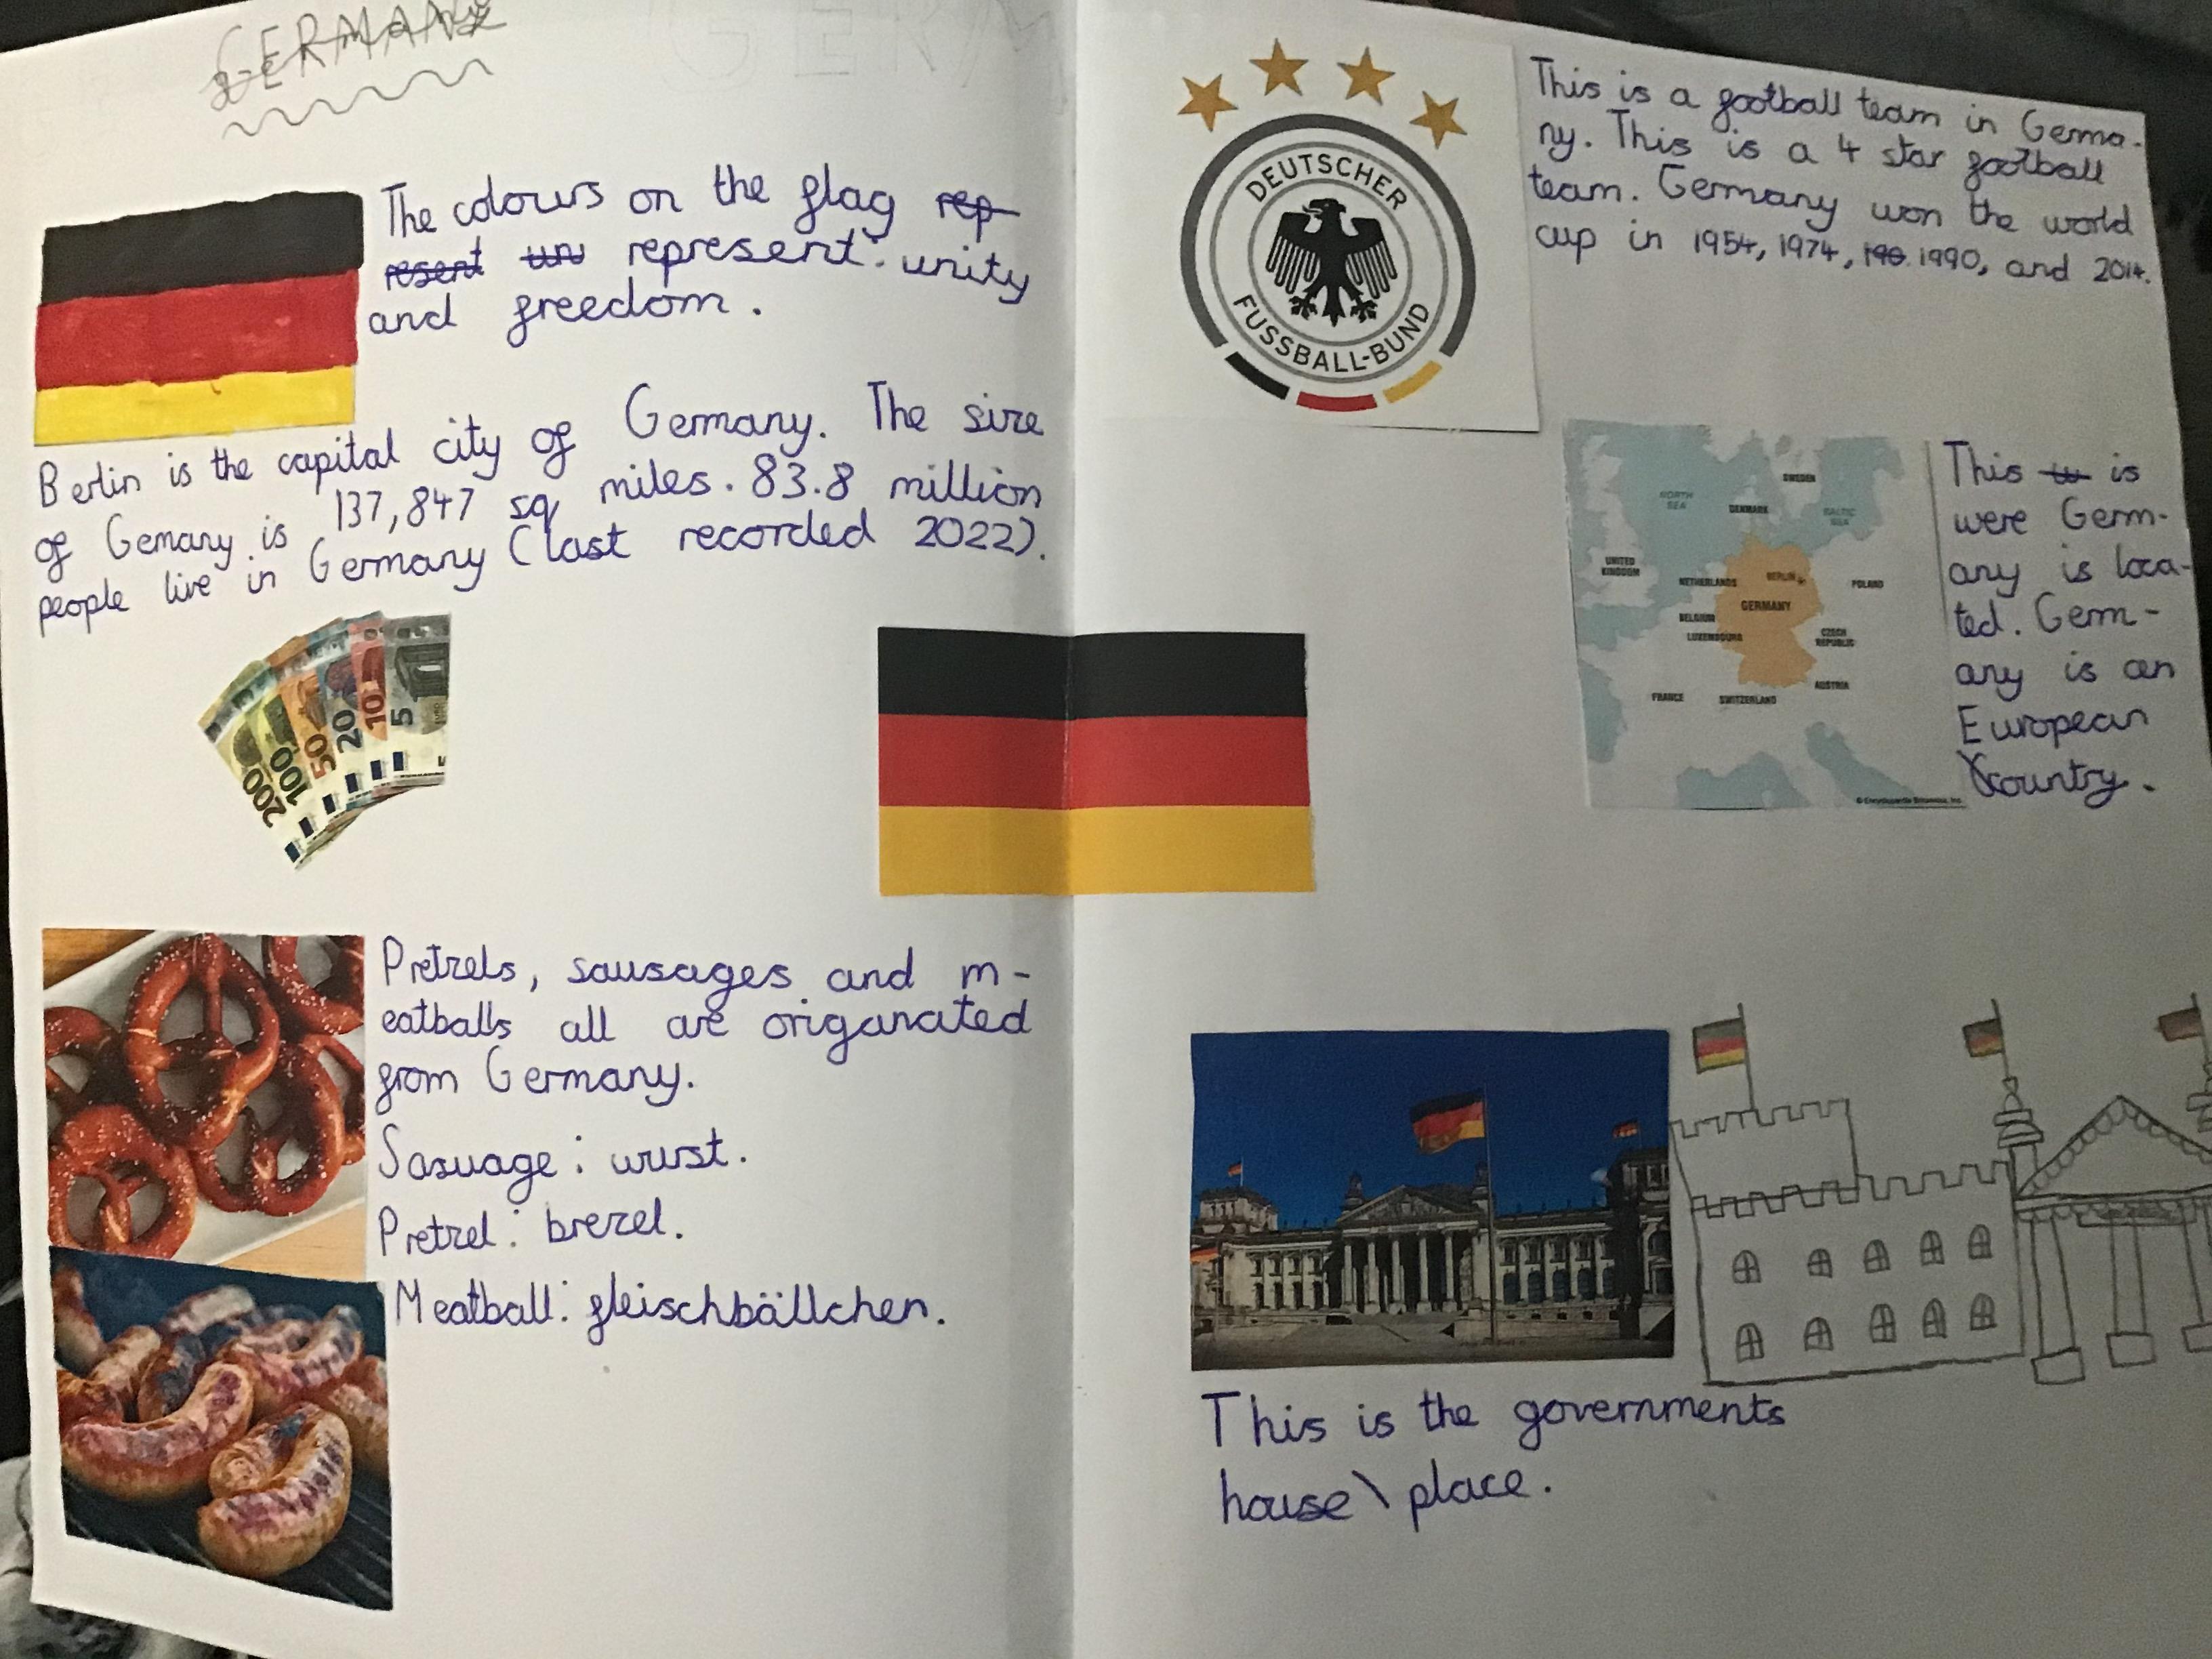 GERMANY
The colours on the flag rep-
resent un represent: unity
and freedom.
Berlin is the capital city of Germany. The size
of Gemany is 137,847 sq miles. 83.8 million
people live in Germany (last recorded 2022).
200 100 50 20 10 5
Pretzels, sausages and m-
eatballs all are origanated
from Germany.
Sasuage: wurst.
Pretzel: brezel.
Meatball: fleischbällchen.
GERM
DEUTSCHER
FUSSBALL-BUND
This is a football team in Germa-
ny. This is a 4 star football
team. Germany won the world
cup in 1954, 1974, 190. 1990, and 2014.
SWEDEN
NORTH
SEA
DENMARK
BALTIC
SEA
UNITED
KINGDOM
NETHERLANDS
BERLIN
POLAND
GERMANY
BELGIUM
LUXEMBOURG
CZECH
REPUBLIC
FRANCE
SWITZERLAND
AUSTRIA
© Encyclopædia Britannica, Inc.
This is
were Germ-
any is loca-
ted. Germ-
any is an
European
country.
This is the governments
house\place.